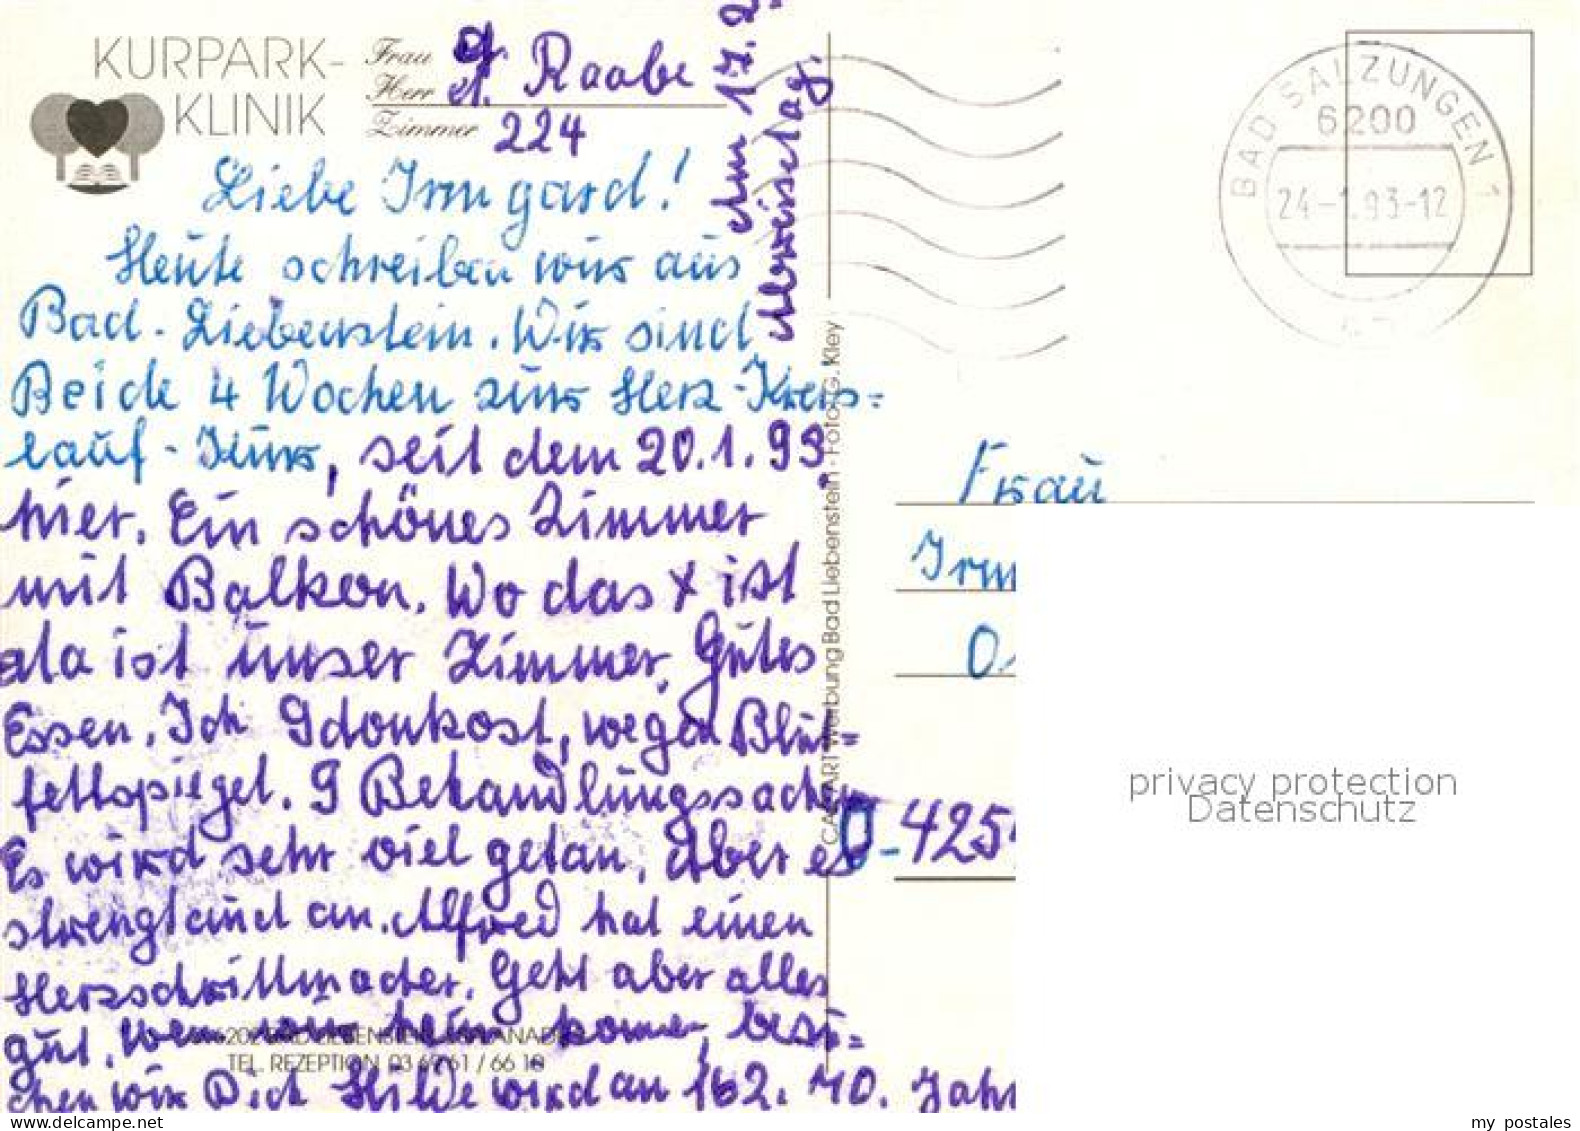 KURPARK-
KLINIK
Frau
Herr
Zimmer
G. Raabe
A.
224
am 17. 2.
Abreisetag.
Liebe Irmgard!
Heute schreiben wir aus
Bad-Liebenstein. Wir sind
Beide 4 Wochen zur Herz-Kreis=
lauf-Kur, seit dem 20.1.93.
hier. Ein schönes Zimmer
mit Balkon. Wo das x ist
da ist unser Zimmer. Gutes
Essen. Ich Schonkost, wegen Blut=
fettspiegel. 9 Behandlungssachen
Es wird sehr viel getan. Aber es
strengt auch an. Alfred hat einen
Herzschrittmacher. Geht aber alles
gut. Wen wir heim komen, besu=
chen wir Dich Hilde wird an 162. 70. Jahr
6202 BAD LIEBENSTEIN, ESPLANADE
TEL. REZEPTION 03 69 61 / 66 10
CARTART Werbung Bad Liebenstein · Foto: G. Kley
BAD SALZUNGEN 1
6200
24-1.93-12
Frau
Irm
O-425
privacy protection
Datenschutz
my postales
www.delcampe.net